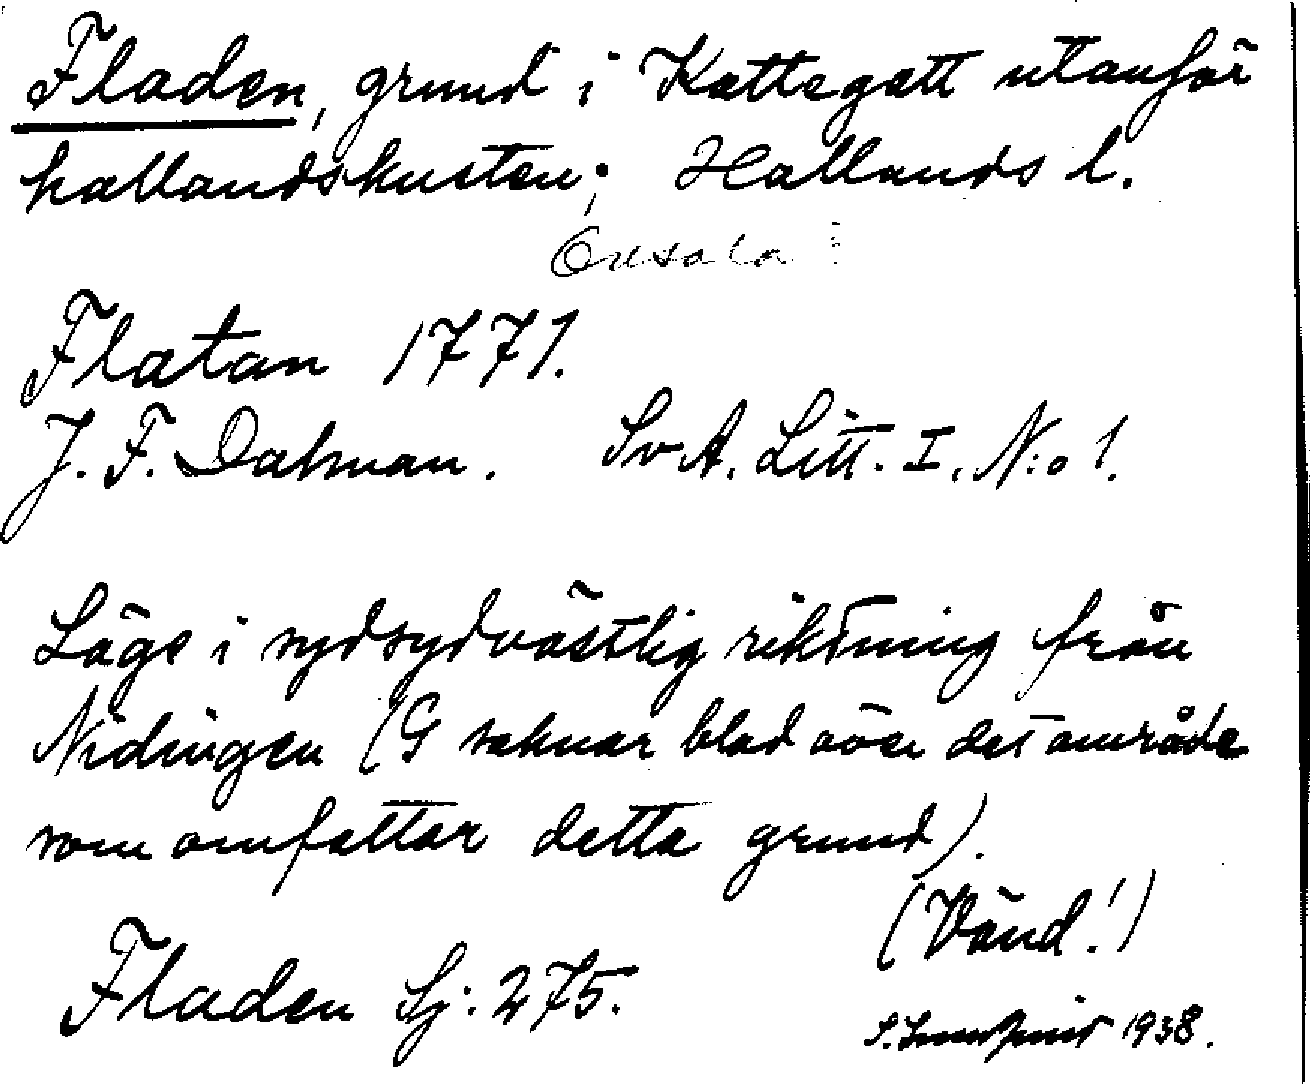 Fladen, grund i Kattegatt utanför
hallandskusten; Hallands l.
Onsala
Flatan 1771.
J. F. Dalman. Sv A. Litt. I. N:o 1.
Läge i sydsydvästlig riktning från
Nidingen (G saknar blad över det område
som omfattar detta grund).
(Vänd!)
Fladen Sj. 275.
1938.